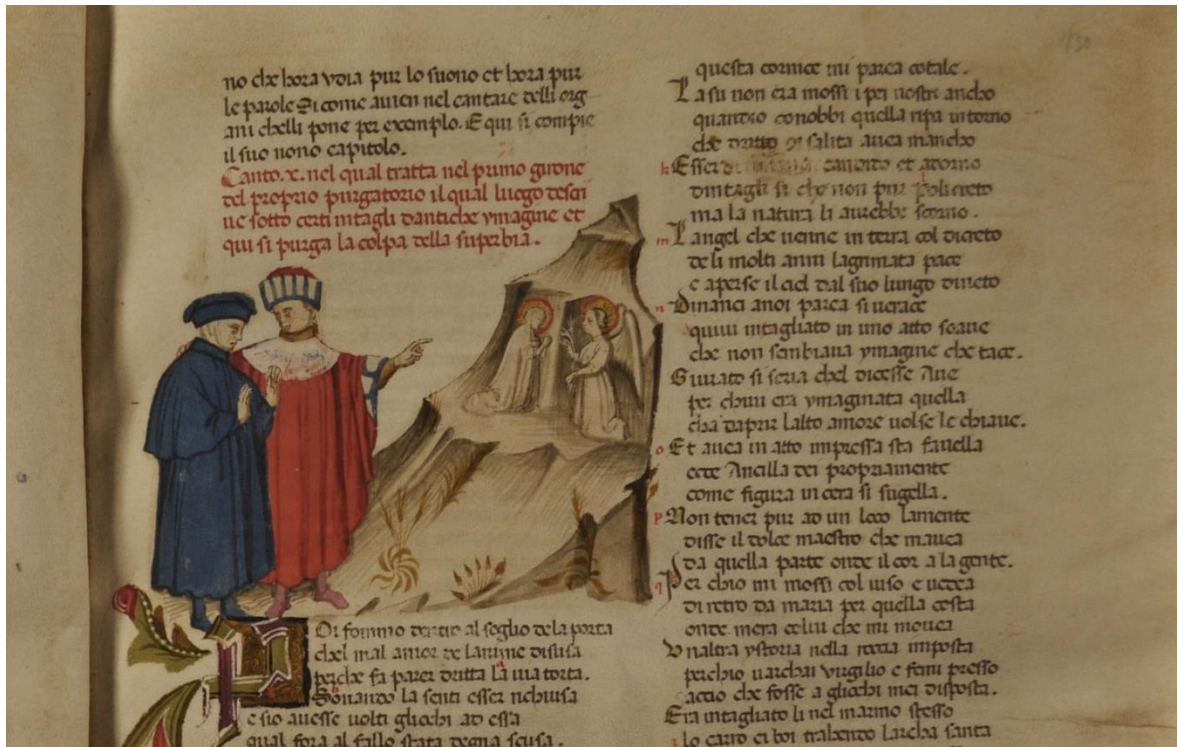 no che hora vdia pur lo suono et hora pur
le parole Si come auien nel cantare delli org
ani chelli pone per exemplo. E qui si compie
il suo nono capitolo.
Canto .x. nel qual tratta nel primo girone
del proprio purgatorio il qual luogo descri
ue sotto certi intagli dantiche ymagine et
qui si purga la colpa della superbia.
Poi fommo dentro al soglio de la porta
chel mal amor de lanime disusa
perche fa parer dritta la uia torta.
Sonando la senti esser richiusa
e sio auesse uolti gliochi ad essa
qual fora al fallo stata degna scusa.
130
questa cornice mi parea cotale.
La su non era mossi i pei nostri ancho
quandio conobbi quella ripa intorno
che dritto di salita auea mancho
k Esser di candido et adorno
dintagli si che non pur Policreto
ma la natura li aurebbe scorno.
m Langel che uenne in terra col dicreto
de li molti anni lagrimata pace
e aperse il ciel dal suo lungo diuieto
n Dinanci anoi parea si uerace
quiui intagliato in uno atto soaue
che non sembiaua ymagine che tace.
Giurato si seria chel dicesse Aue
per chiui era ymaginata quella
cha daprir lalto amore uolse le chiaue.
o Et auea in atto impressa sta fauella
ecce Ancilla dei propriamente
come figura in cera si sugella.
p Non tener pur ad un loco lamente
disse il dolce maestro che mauea
da quella parte onde il cor a la gente.
q Per chio mi mossi col uiso e uedea
di retro da maria per quella costa
onde mera colui che mi mouea
Vnaltra ystoria nella roccia imposta
perchio uarchai virgilio e femi presso
accio che fosse a gliochi mei disposta.
Era intagliato li nel marmo stesso
lo carro ei boi trahendo larcha santa